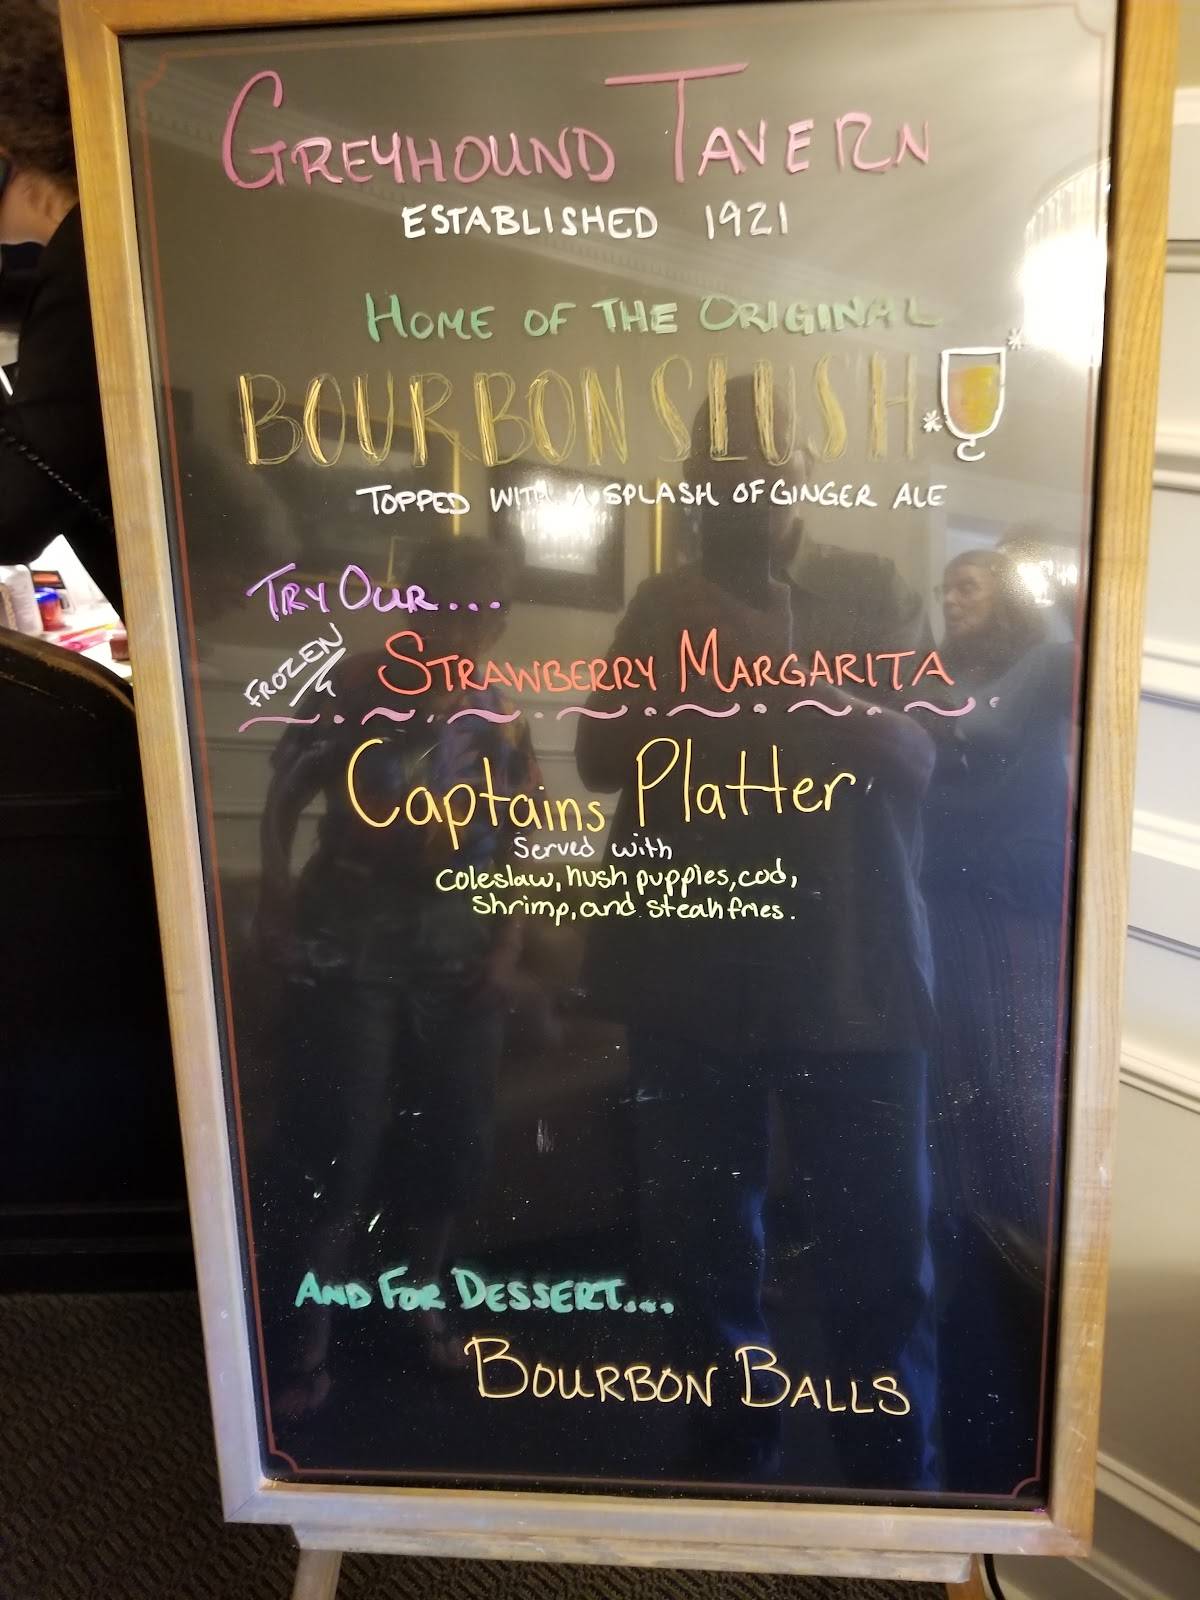 GREYHOUND TAVERN
ESTABLISHED 1921
HOME OF THE ORIGINAL
BOURBON SLUSH
TOPPED WITH A SPLASH OF GINGER ALE
TRY OUR...
FROZEN
STRAWBERRY MARGARITA
Captains Platter
Served with
coleslaw, hush puppies, cod,
shrimp, and steak fries.
AND FOR DESSERT...
BOURBON BALLS